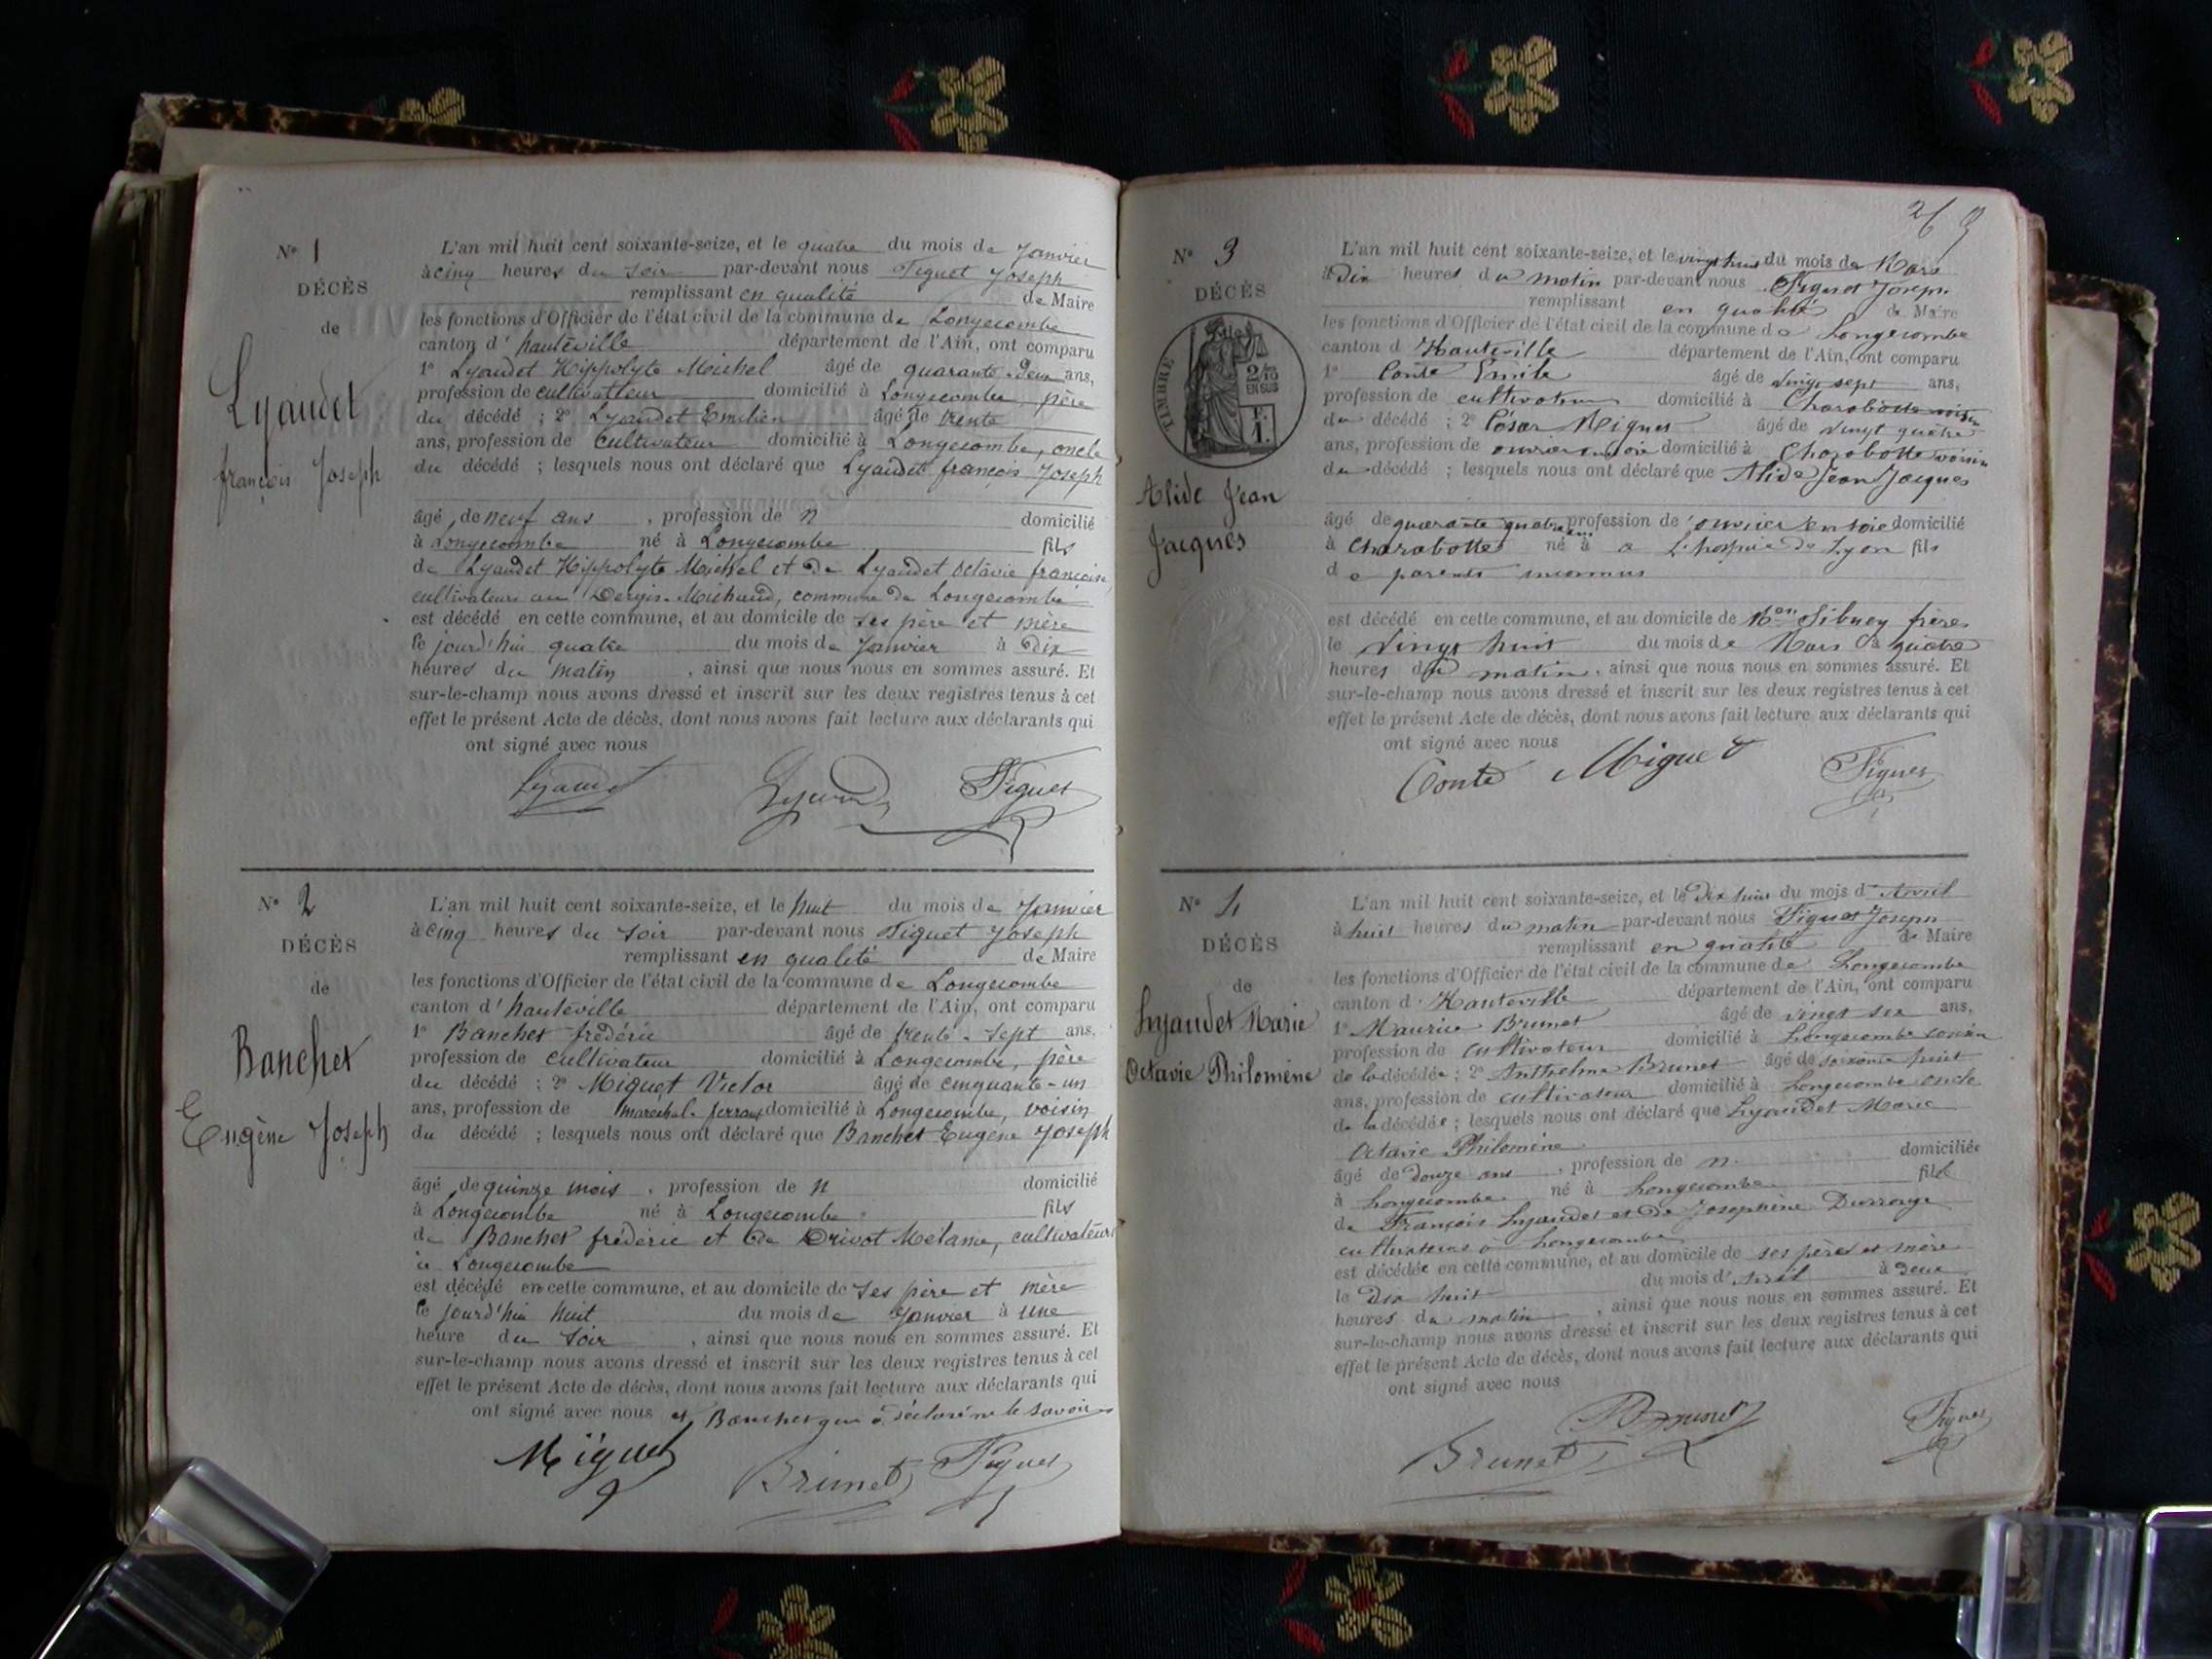 Nº 1
DÉCÈS
de
Lyaudet
françois Joseph
L'an mil huit cent soixante-seize, et le quatre du mois de Janvier
à cinq heures du soir par-devant nous Tiguet Joseph
remplissant en qualité de Maire
les fonctions d'Officier de l'état civil de la commune de Longecombe
canton d' hauteville département de l'Ain, ont comparu
1º Lyaudet Hippolyte Michel âgé de quarante-deux ans,
profession de cultivatteur domicilié à Longecombe, père
du décédé ; 2º Lyaudet Emilien âgé de trente
ans, profession de Cultivateur domicilié à Longecombe, oncle
du décédé ; lesquels nous ont déclaré que Lyaudet françois Joseph
âgé de neuf ans , profession de n domicilié
à Longecombe né à Longecombe fils
de Lyaudet Hippolyte Michel et de Lyaudet Octavie françoise
cultivateurs au Dergis-Michaud, commune de Longecombe
est décédé en cette commune, et au domicile de ses père et mère
le jourd'hui quatre du mois de Janvier à dix
heures du matin , ainsi que nous nous en sommes assuré. Et
sur-le-champ nous avons dressé et inscrit sur les deux registres tenus à cet
effet le présent Acte de décès, dont nous avons fait lecture aux déclarants qui
ont signé avec nous
Lyaudet Tiguet
Nº 2
DÉCÈS
de
Banchet
Eugène Joseph
L'an mil huit cent soixante-seize, et le huit du mois de Janvier
à cinq heures du soir par-devant nous Tiguet Joseph
remplissant en qualité de Maire
les fonctions d'Officier de l'état civil de la commune de Longecombe
canton d' hauteville département de l'Ain, ont comparu
1º Banchet frédéric âgé de trente-sept ans,
profession de cultivateur domicilié à Longecombe, père
du décédé ; 2º Miguet Victor âgé de cinquante-un
ans, profession de marechal-ferrant domicilié à Longecombe, voisin
du décédé ; lesquels nous ont déclaré que Banchet Eugène Joseph
âgé de quinze mois , profession de n domicilié
à Longecombe né à Longecombe fils
de Banchet frédéric et de Drivot Mélanie, cultivateurs
à Longecombe
est décédé en cette commune, et au domicile de ses père et mère
le jourd'hui huit du mois de Janvier à une
heure du soir , ainsi que nous nous en sommes assuré. Et
sur-le-champ nous avons dressé et inscrit sur les deux registres tenus à cet
effet le présent Acte de décès, dont nous avons fait lecture aux déclarants qui
ont signé avec nous et Banchet qui a déclaré ne le savoir
Miguet Brunet Tiguet
Nº 3
DÉCÈS
TIMBRE
2/10
EN SUS
Alide Jean
Jacques
L'an mil huit cent soixante-seize, et le vingt huit du mois de Mars
à Dix heures du matin par-devant nous Tiguet Joseph
remplissant en qualité de Maire
les fonctions d'Officier de l'état civil de la commune de Longecombe
canton d Hauteville département de l'Ain, ont comparu
1º Conte Emile âgé de vingt sept ans,
profession de cultivateur domicilié à Charabotte voisin
du décédé ; 2º César Miguet âgé de vingt quatre
ans, profession de ouvrier en soie domicilié à Charabotte voisin
du décédé ; lesquels nous ont déclaré que Alide Jean Jacques
âgé de quarante quatre ans profession de ouvrier en soie domicilié
à Charabotte né à a L'hospice de Lyon fils
de parents inconnus
est décédé en cette commune, et au domicile de Mon Sibuey frères
le Vingt huit du mois de Mars à quatre
heures du matin , ainsi que nous nous en sommes assuré. Et
sur-le-champ nous avons dressé et inscrit sur les deux registres tenus à cet
effet le présent Acte de décès, dont nous avons fait lecture aux déclarants qui
ont signé avec nous
Conte Miguet Tiguet
Nº 4
DÉCÈS
de
Lyaudet Marie
Octavie Philomène
L'an mil huit cent soixante-seize, et le Dix huit du mois d' Avril
à huit heures du matin par-devant nous Tiguet Joseph
remplissant en qualité de Maire
les fonctions d'Officier de l'état civil de la commune de Longecombe
canton d' Hauteville département de l'Ain, ont comparu
1º Maurice Brunet âgé de vingt six ans,
profession de cultivateur domicilié à Longecombe cousin
de la décédée ; 2º Anthelme Brunet âgé de soixante huit
ans, profession de cultivateur domicilié à Longecombe oncle
de la décédée ; lesquels nous ont déclaré que Lyaudet Marie
Octavie Philomène
âgé de douze ans , profession de n. domiciliée
à Longecombe né à Longecombe fille
de François Lyaudet et de Josephine Durrouge
cultivateurs à Longecombe
est décédée en cette commune, et au domicile de ses père et mère
le Dix huit du mois d' Avril à deux
heures du matin , ainsi que nous nous en sommes assuré. Et
sur-le-champ nous avons dressé et inscrit sur les deux registres tenus à cet
effet le présent Acte de décès, dont nous avons fait lecture aux déclarants qui
ont signé avec nous
Brunet Brunet Tiguet